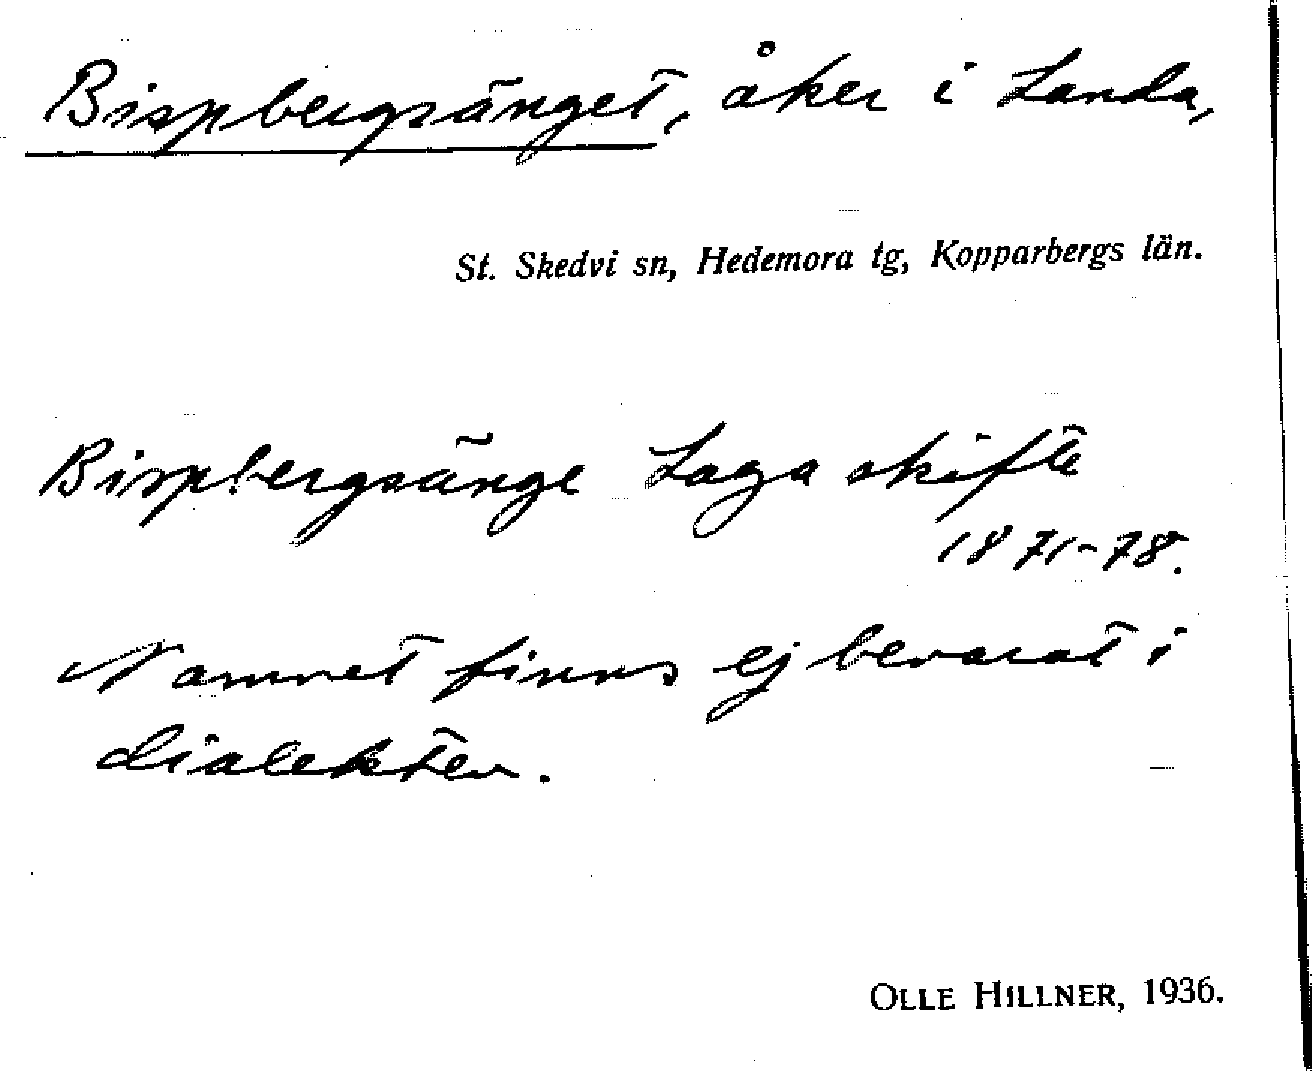 Bispbergsänget, åker i Landa,
St. Skedvi sn, Hedemora tg, Kopparbergs län.
Bispbergsänge Laga skifte
1871-78.
Namnet finns ej bevarat i
dialekten.
OLLE HILLNER, 1936.